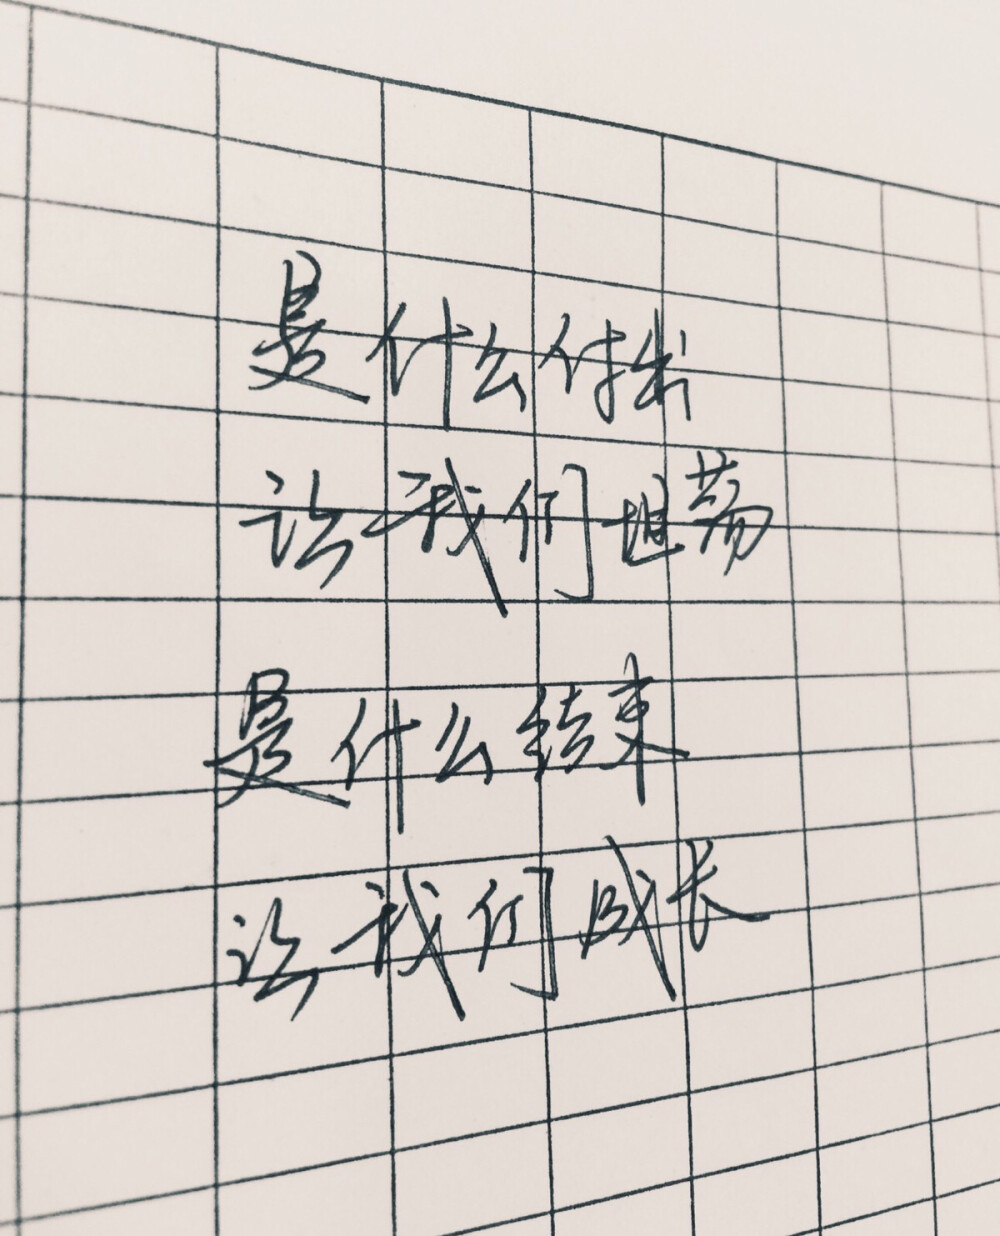 是什么付出
让我们坦荡
是什么结束
让我们成长